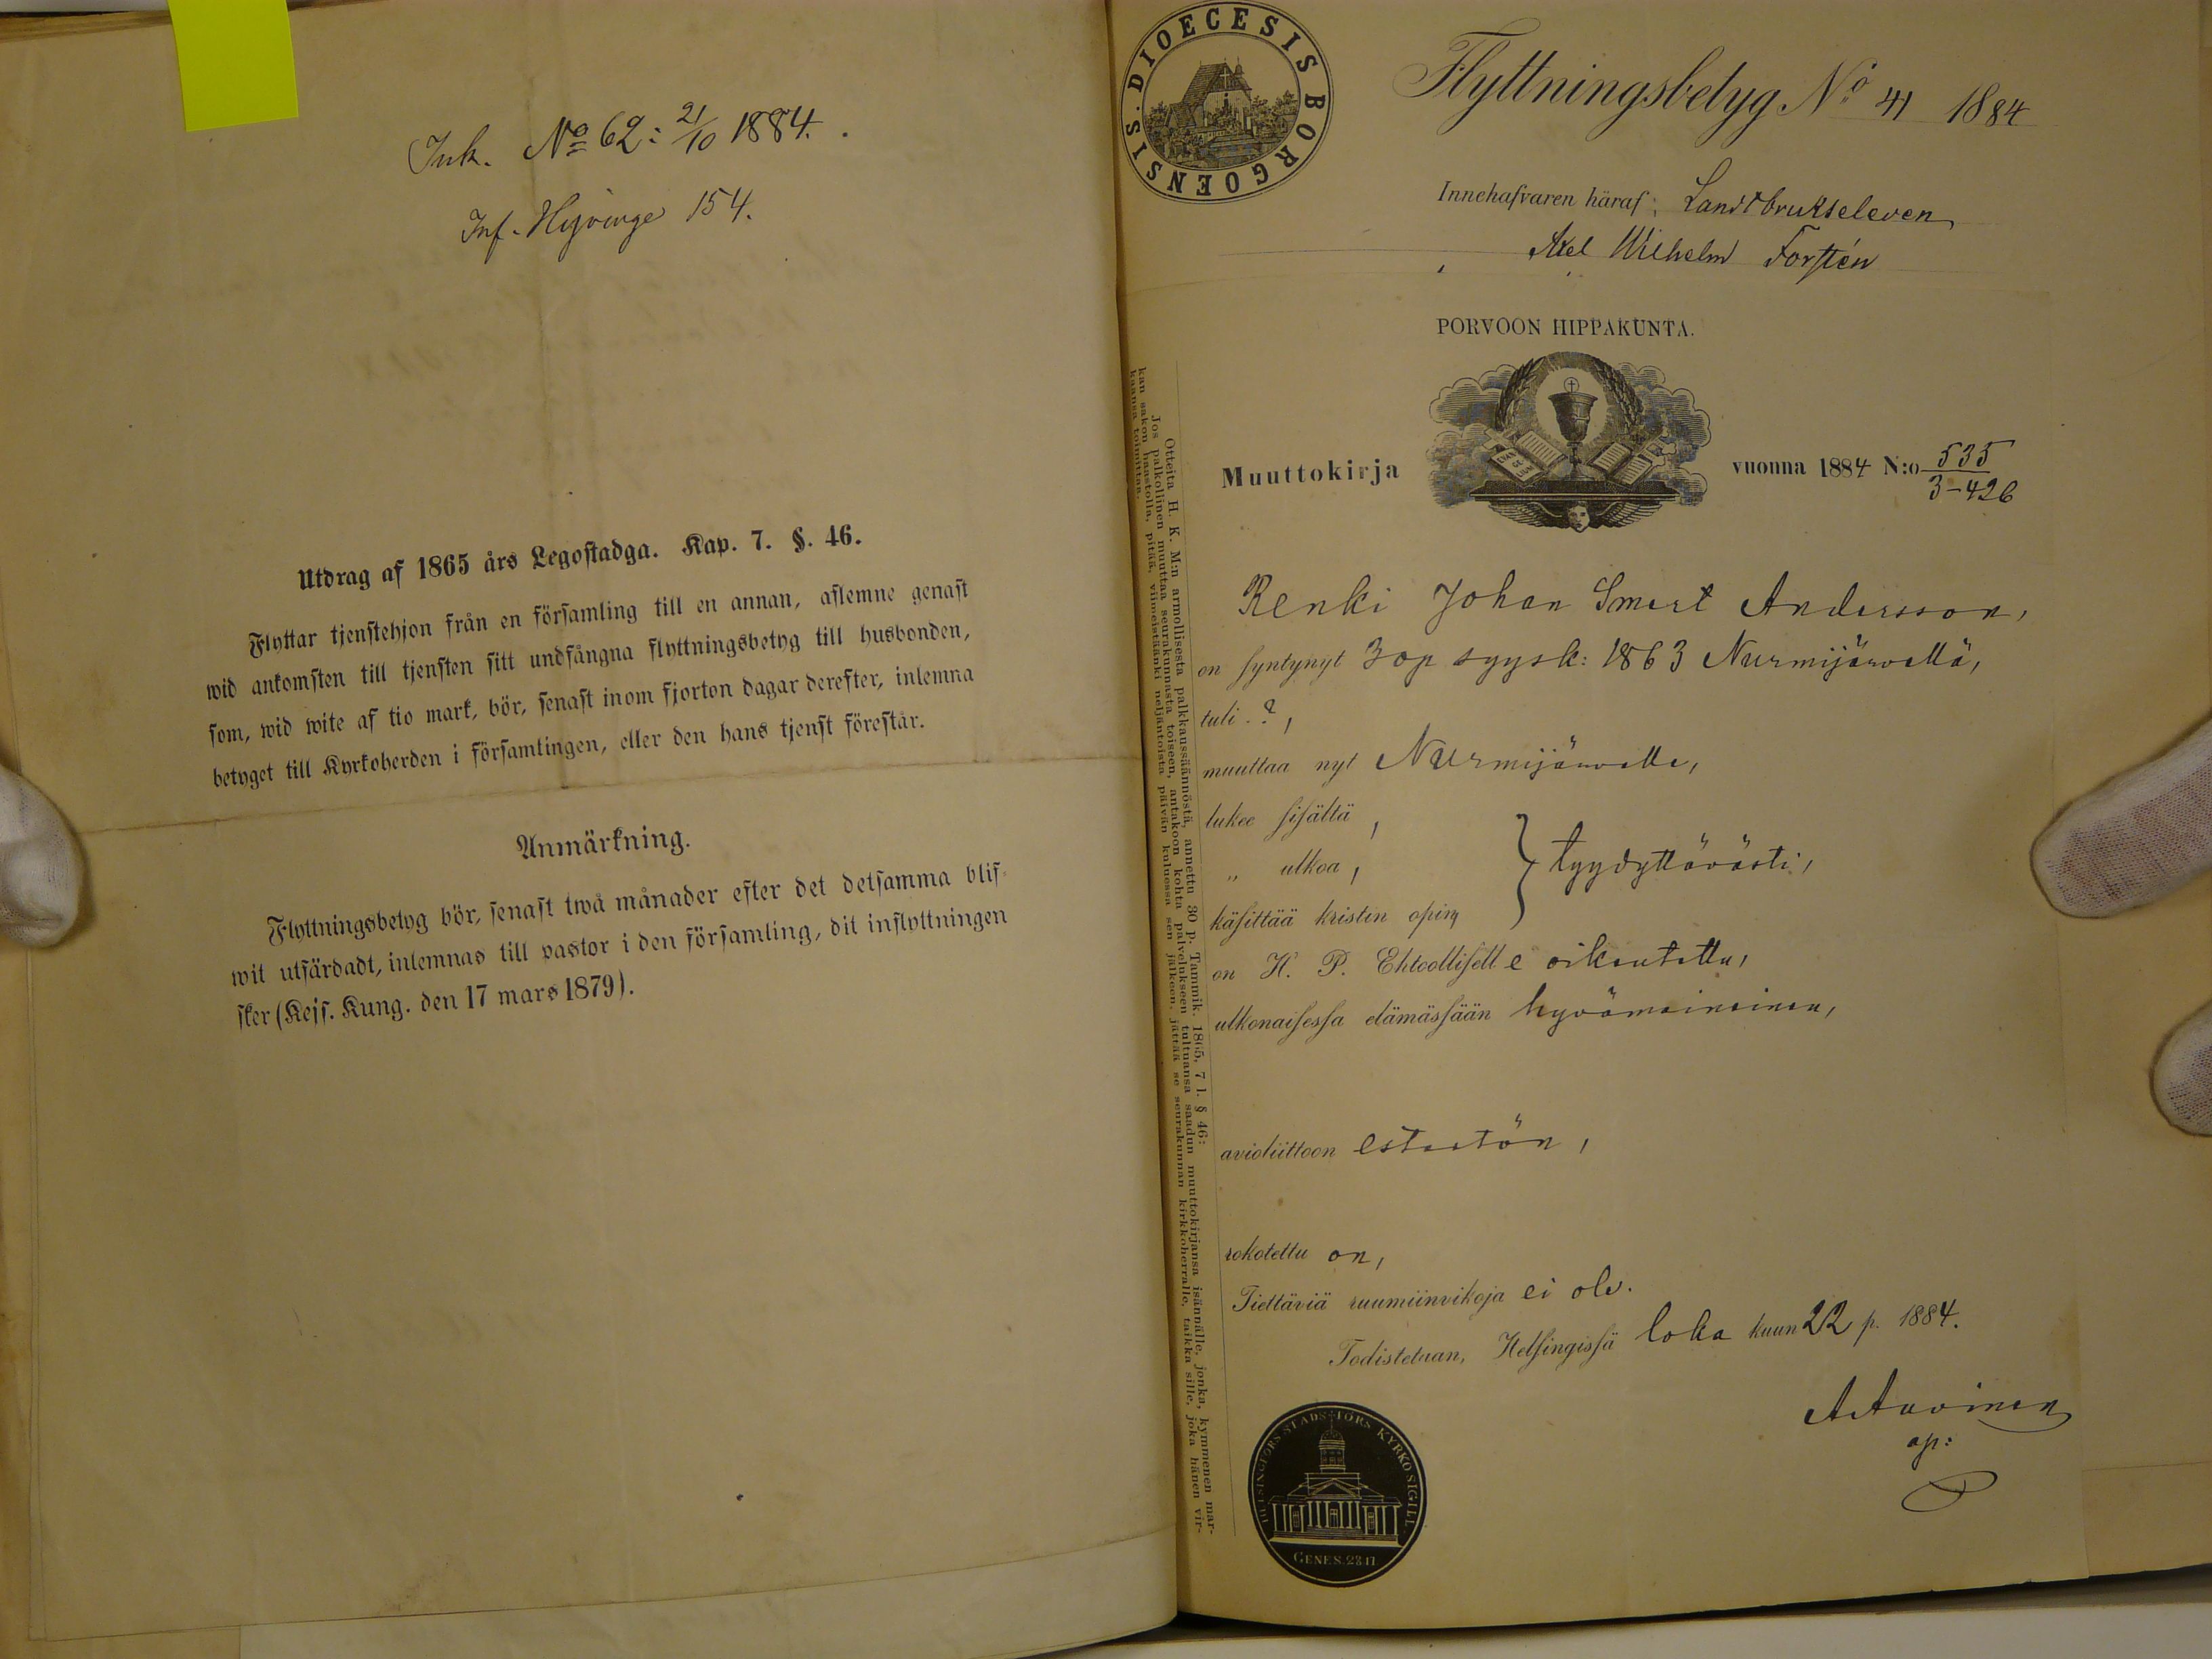 Ink. No 62: 21/10 1884.
Inf. Hyvinge 154.
Utdrag af 1865 års Legostadga. Kap. 7. §. 46.
Flyttar tjenstehjon från en församling till en annan, aflemne genast
wid ankomsten till tjensten sitt undfångna flyttningsbetyg till husbonden,
som, wid wite af tio mark, bör, senast inom fjorton dagar derefter, inlemna
betyget till Kyrkoherden i församlingen, eller den hans tjenst förestår.
Anmärkning.
Flyttningsbetyg bör, senast twå månader efter det detsamma blif-
wit utfärdadt, inlemnas till pastor i den församling, dit inflyttningen
sker (Kejs. Kung. den 17 mars 1879).
DIOECESIS BORGOENSIS.
Flyttningsbetyg No 41 1884
Innehafvaren häraf: Landtbrukseleven
Axel Wilhelm Forstén
PORVOON HIPPAKUNTA.
EVAN GE LIUM
Muuttokirja vuonna 1884 N:o 535
3-426
Otteita H. K. M:n armollisesta palkkaussäännöstä, annettu 30 p. Tammik. 1865, 7 l. § 46:
Jos palkollinen muuttaa seurakunnasta toiseen, antakoon kohta palvelukseen tultuansa saadun muuttokirjansa isännälle, jonka, kymmenen mar-
kan sakon haastolla, pitää, viimeistäänki neljäntoista päivän kuluessa sen jälkeen, jättää se seurakunnan kirkkoherralle, taikka sille, joka hänen vir-
kaansa toimittaa.
Renki Johan Andersson,
on syntynyt 3 op syysk: 1863 Nurmijärvellä,
tuli . ? ,
muuttaa nyt Nurmijärvelle,
lukee sisältä ,
„ ulkoa , } tyydyttävästi,
käsittää kristin opin,
on H. P. Ehtoollisell e oikeutettu,
ulkonaisessa elämässään hyvämaineinen,
avioliittoon esteetön ,
rokotettu on,
Tiettäviä ruumiinvikoja ei ole.
Todistetaan, Helsingissä loka kuun 22 p. 1884.
A Auvinen
ap:
HELSINGFORS STADS FÖRS. KYRKO SIGILL.
GENES. 28 17